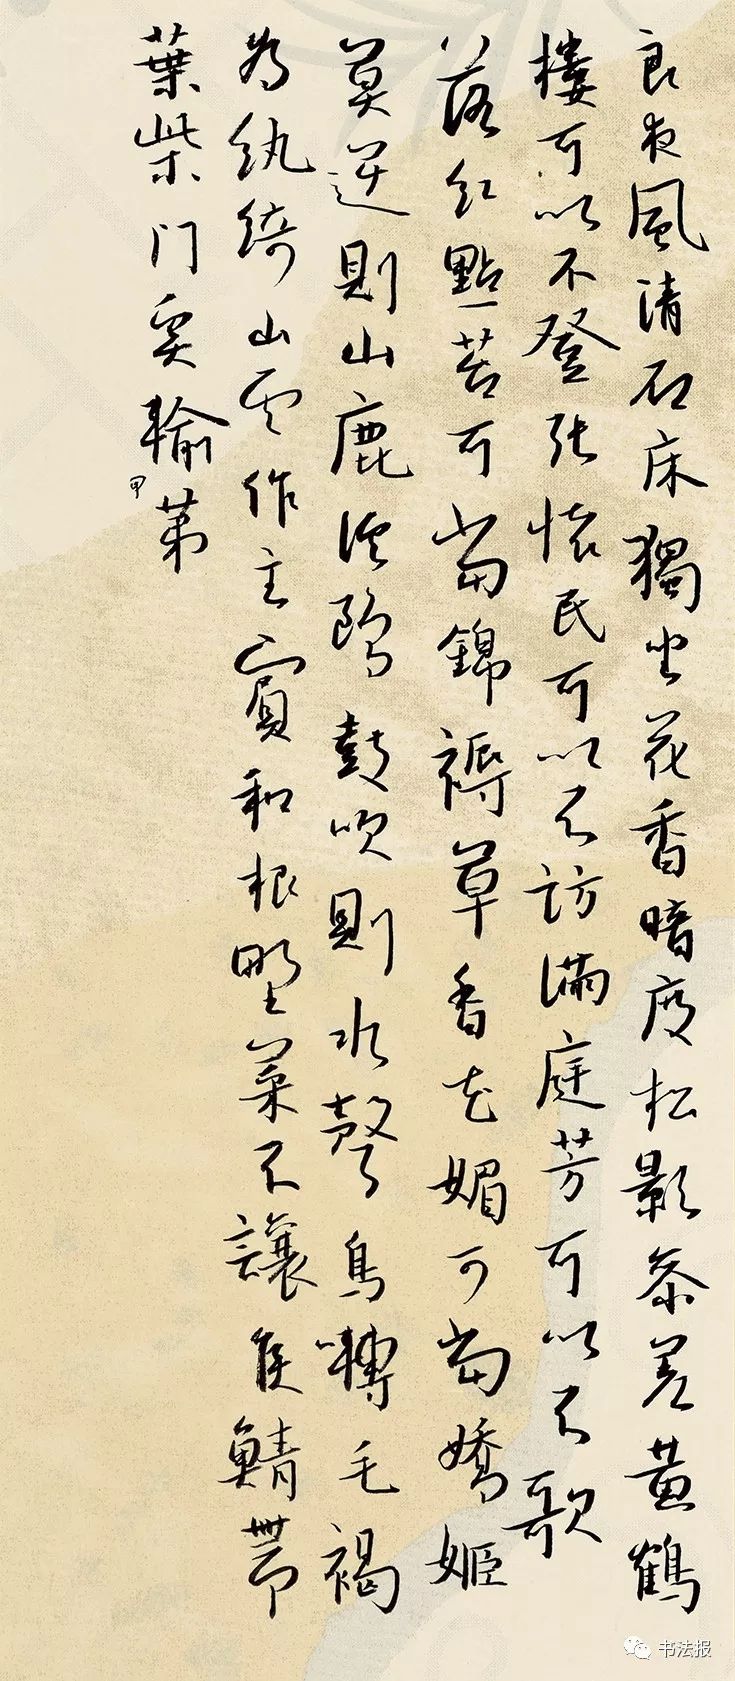 良夜風清石床獨坐花香暗度松影参差黄鶴
樓可以不登张懷民可以不訪滿庭芳可以不歌
落紅點苔可當錦褥草香花媚可當嬌姬
莫逆則山鹿溪鷗鼓吹則水聲鳥囀毛褐
為紈綺山雲作主賓和根野菜不讓侯鯖帶
葉柴門奚輸甲第
书法报